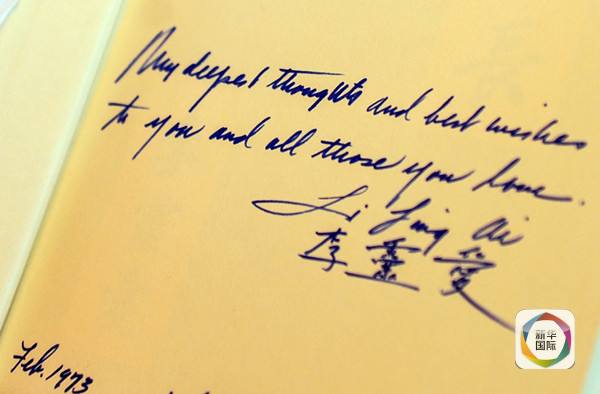 My deepest thoughts and best wishes
to you and all those you love.
Li Ling Ai
李靈愛
Feb. 1973
新华
国际